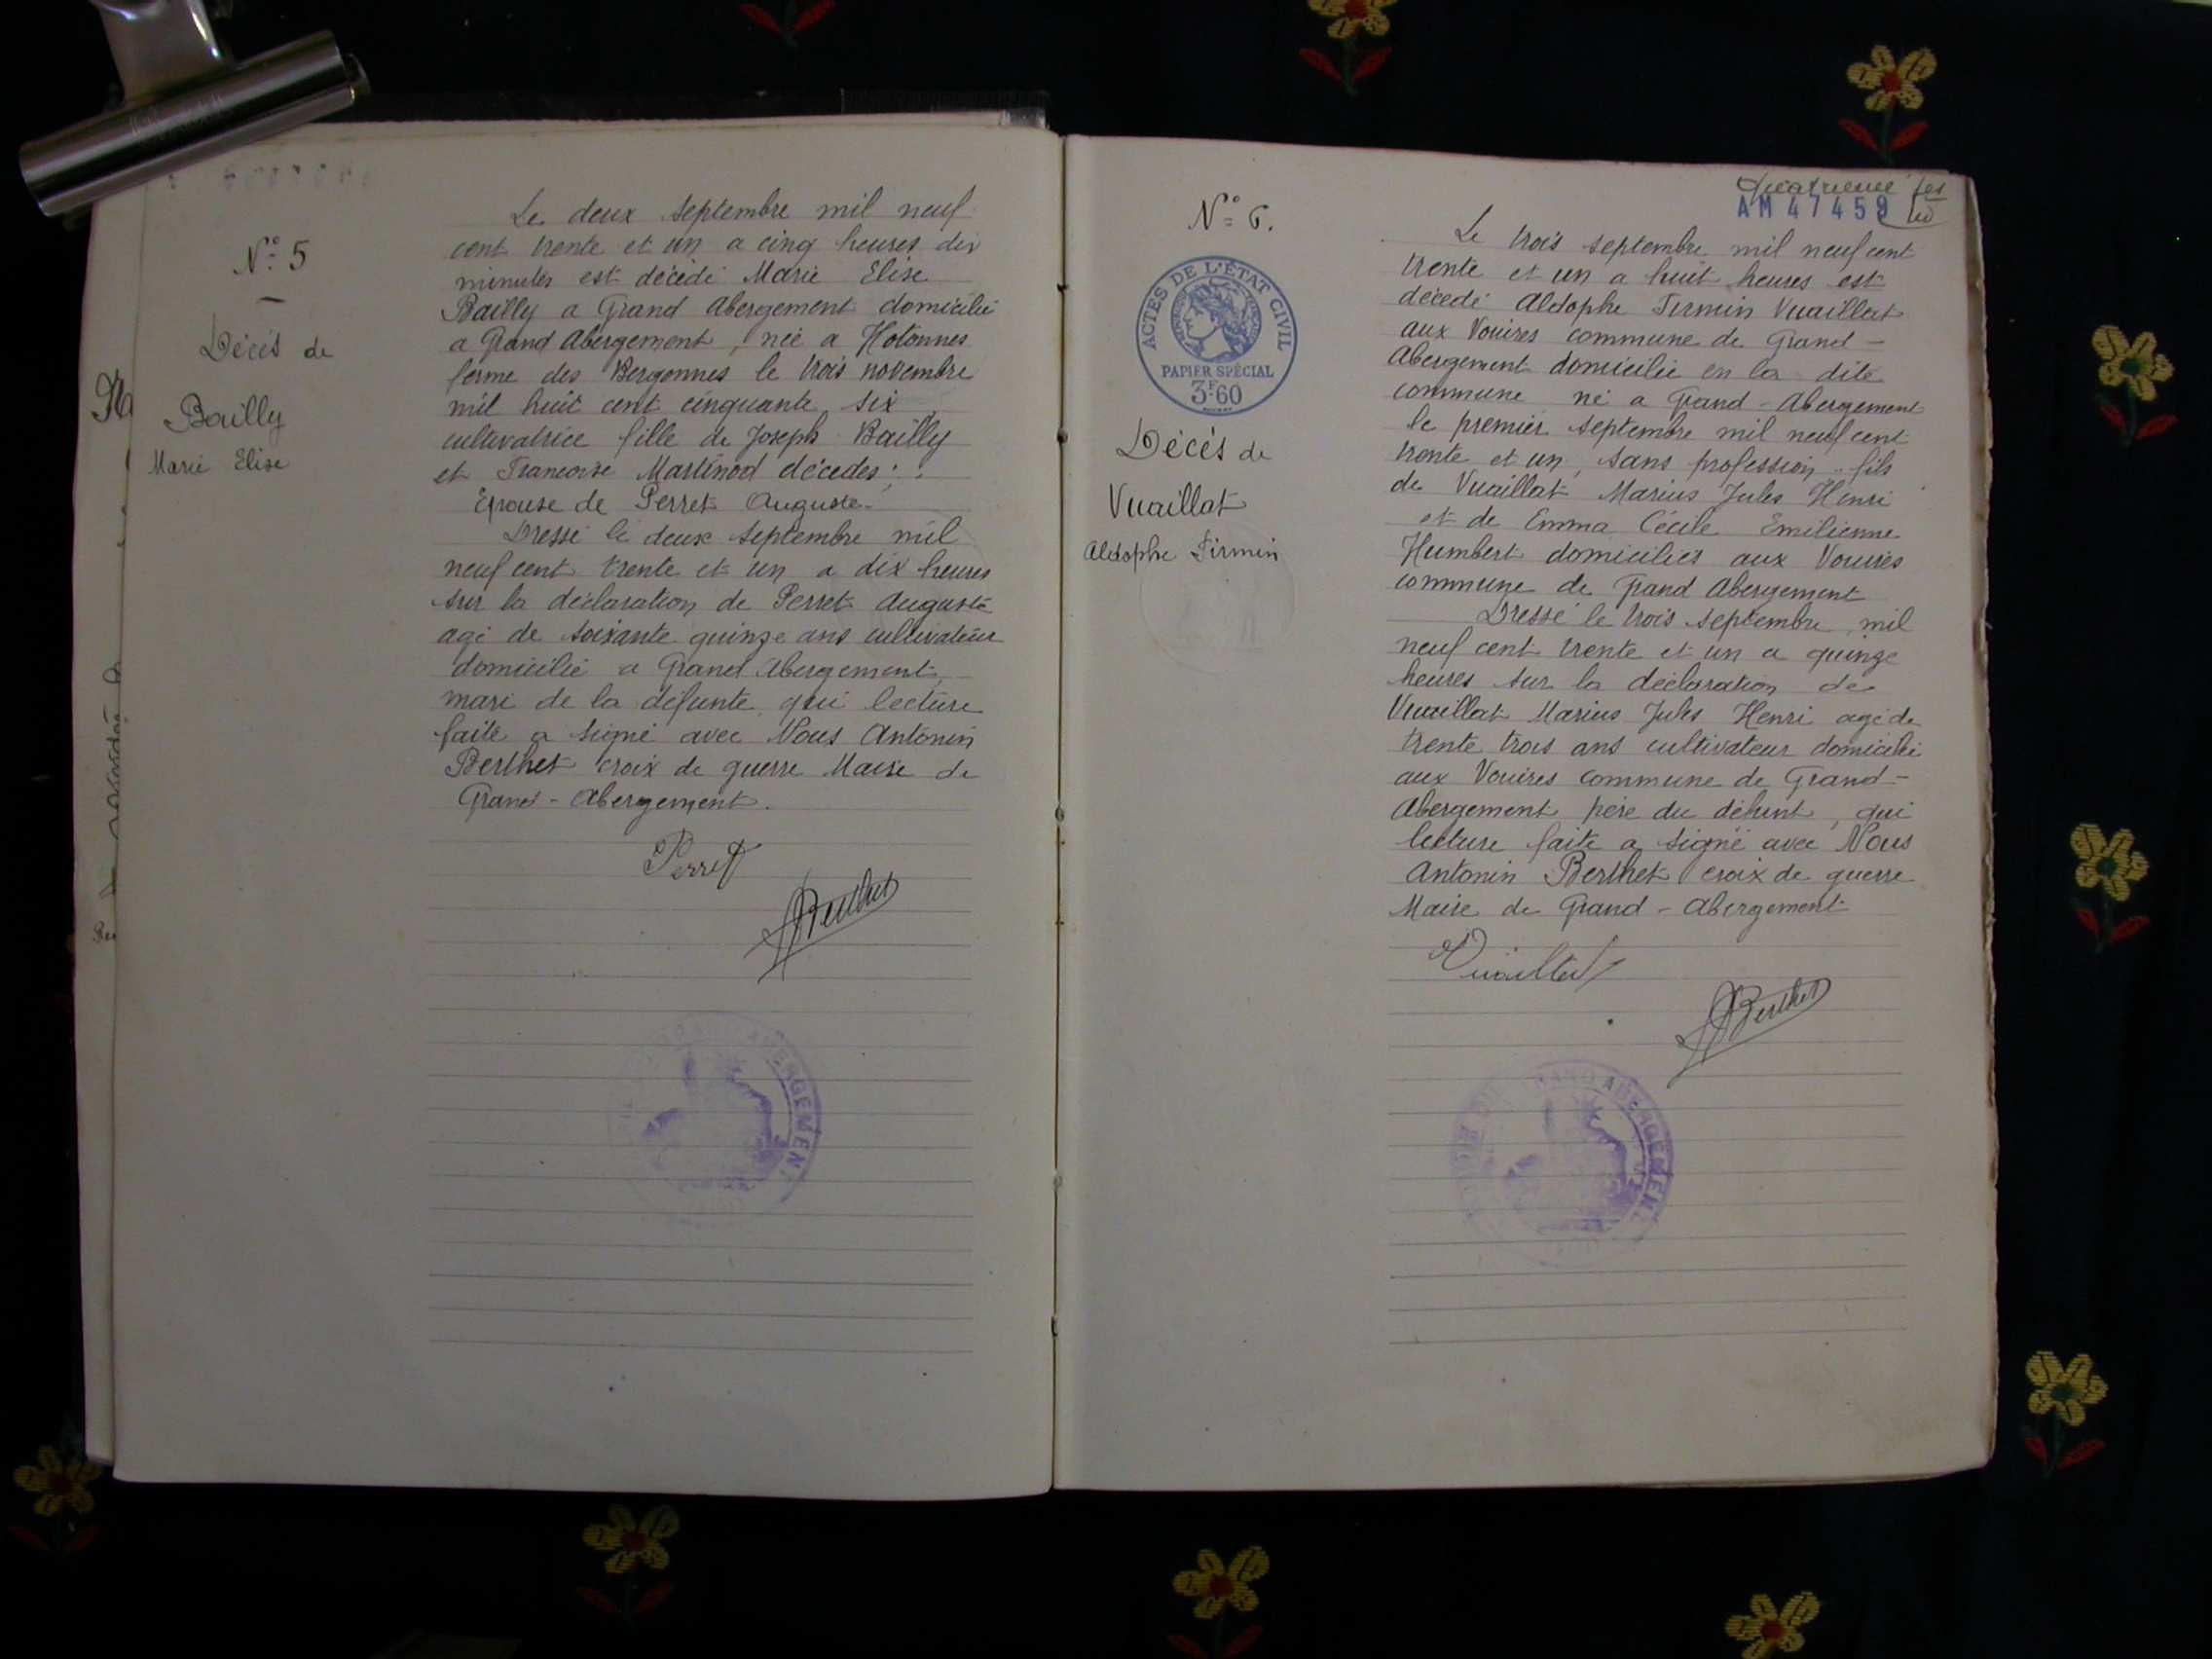 N° 5
Décés de
Bailly
Marie Elise
Le deux septembre mil neuf
cent trente et un a cinq heures dix
minutes est décédé Marie Elise
Bailly a Grand Abergement domicilié
a Grand Abergement, née a Hotonnes
ferme des Bergonnes le trois novembre
mil huit cent cinquante six
cultivatrice fille de Joseph Bailly
et Francoise Martinod décédés;
Epouse de Perret Auguste.
Dressé le deux septembre mil
neuf cent trente et un a dix heures
sur la déclaration de Perret Auguste
agé de soixante quinze ans cultivateur
domicilié a Grand Abergement
mari de la défunte qui lecture
faite a signé avec Nous Antonin
Berthet croix de guerre Maire de
Grand-Abergement.
Perret
Berthet
ABERGEMENT
Quatrième
AM 47459
N° 6.
ACTES DE L'ÉTAT CIVIL
PAPIER SPÉCIAL
3F60
Décés de
Vuaillat
Aldophe Firmin
Le trois septembre mil neuf cent
trente et un a huit heures est
décedé Aldophe Firmin Vuaillat
aux Vouires commune de Grand-
Abergement domicilié en la dite
commune né a Grand-Abergement
le premier septembre mil neuf cent
trente et un, sans profession, fils
de Vuaillat Marius Jules Henri
et de Emma Cécile Emilienne
Humbert domiciliés aux Vouires
commune de Grand Abergement
Dressé le trois septembre mil
neuf cent trente et un a quinze
heures sur la déclaration de
Vuaillat Marius Jules Henri agé de
trente trois ans cultivateur domicilié
aux Vouires commune de Grand-
Abergement pére du défunt, qui
lecture faite a signé avec Nous
Antonin Berthet croix de guerre
Maire de Grand-Abergement
Vuaillat
Berthet
GRAND ABERGEMENT